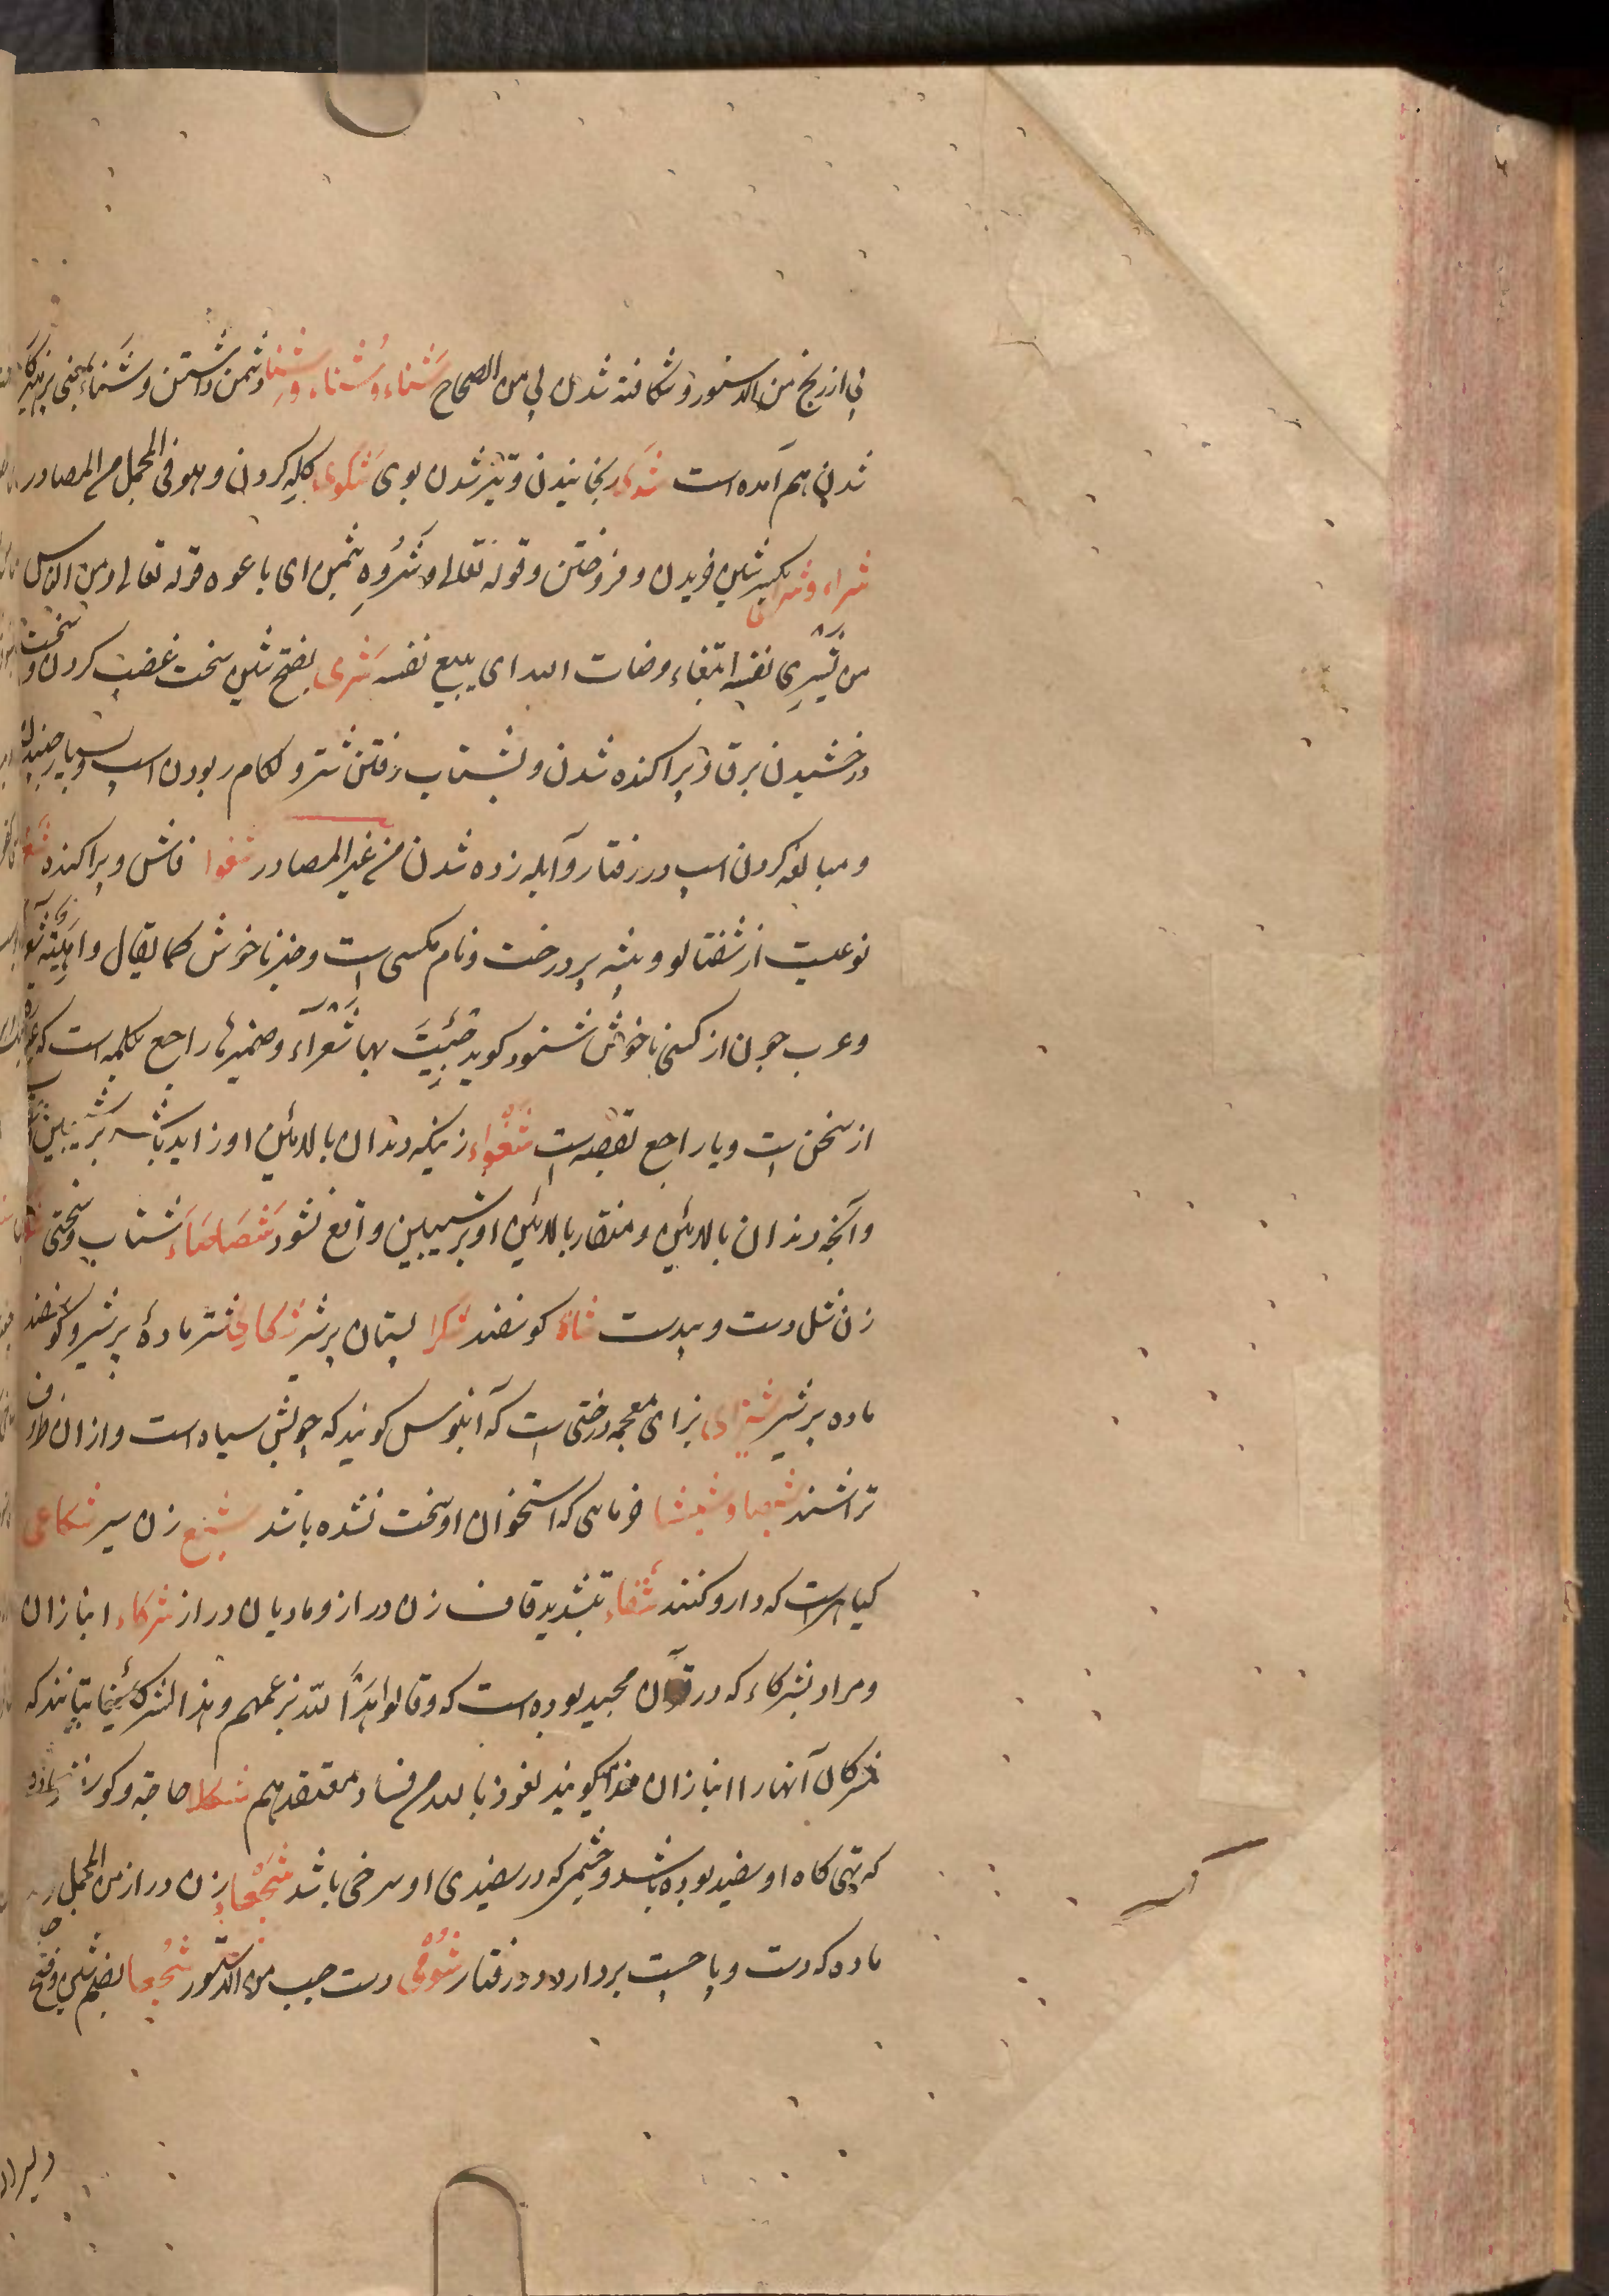 پی از رنج من الدستور و شکافته شدن لی من الصحاح شَناء و شُناء و شِناء دشمن داشتن و شَناء بمعنی پرهیزکار
شدن هم آمده است شذی رنجانیدن و تیز شدن بوی شکوی کله کردن و هو فی المجمل من المصادر
شراء و شری بکسر شین خریدن و فروختن و قوله تعالی و شَرَوه بثمن ای باعوه قوله تعالی و من الناس
من یشری نفسه ابتغاء مرضات الله ای یبیع نفسه شَری بفتح شین سخت غضب کردن و سخت
درخشیدن برق و پراکنده شدن و بشتاب رفتن شتر و لکام ربودن اسب و بسیار جنبیدن
و مبالغه کردن اسب در رفتار و آبله زده شدن من غیر المصادر شعوا فاش و پراکنده
نوعیست از شفتالو و بیشه پر درخت و نام مکسی است و خبر ناخوش کما یقال داهیة شعراء
و عرب چون از کسی ناخوش شنود کوید جئتَ بها شَعراء و ضمیر ها راجع بکلمه است که
از سخن است و یا راجع بقصه است شغواء زنیکه دندان بالائین او زاید باشد بر شیبین
و آنچه دندان بالائین و منقار بالائین او بر شیبین واقع نشود شَصَاصَاء شتاب و سختی
زن شل دست و بیدست شاة کوسفند شکرا پستان پر شیر شکاری شتر مادهٔ پر شیر و کوسفند
ماده پر شیر شیزی بزای معجمه درختی است که آبنوس کویند که چوبش سیاه است و از آن ظروف
تراشند شیصا و شیشا خرمایی که استخوان او سخت نشده باشد شبع زن سیر شکاعی
کیاهی است که دارو کنند شقّاء بتشدید قاف زن دراز و مادیان دراز شرکاء انبازان
و مراد بشرکاء که در قرآن مجید بوده است که و قالوا هذا لله بزعمهم و هذا لشرکائنا بتانند که
مشرکان آنها را انبازان خدا میکویند نعوذ بالله من فساد معتقدهم شکلا حاجة و کوسفند ماده
که تهی کاه او سفید بوده باشد و چشمی که در سفیدی او سرخی باشد شجعاء زن دراز من المجمل
ماده که دست و پا چست بردارد در رفتار شُؤمی دست چپ من الدستور شُجعا بضم شین و فتح
دلیران